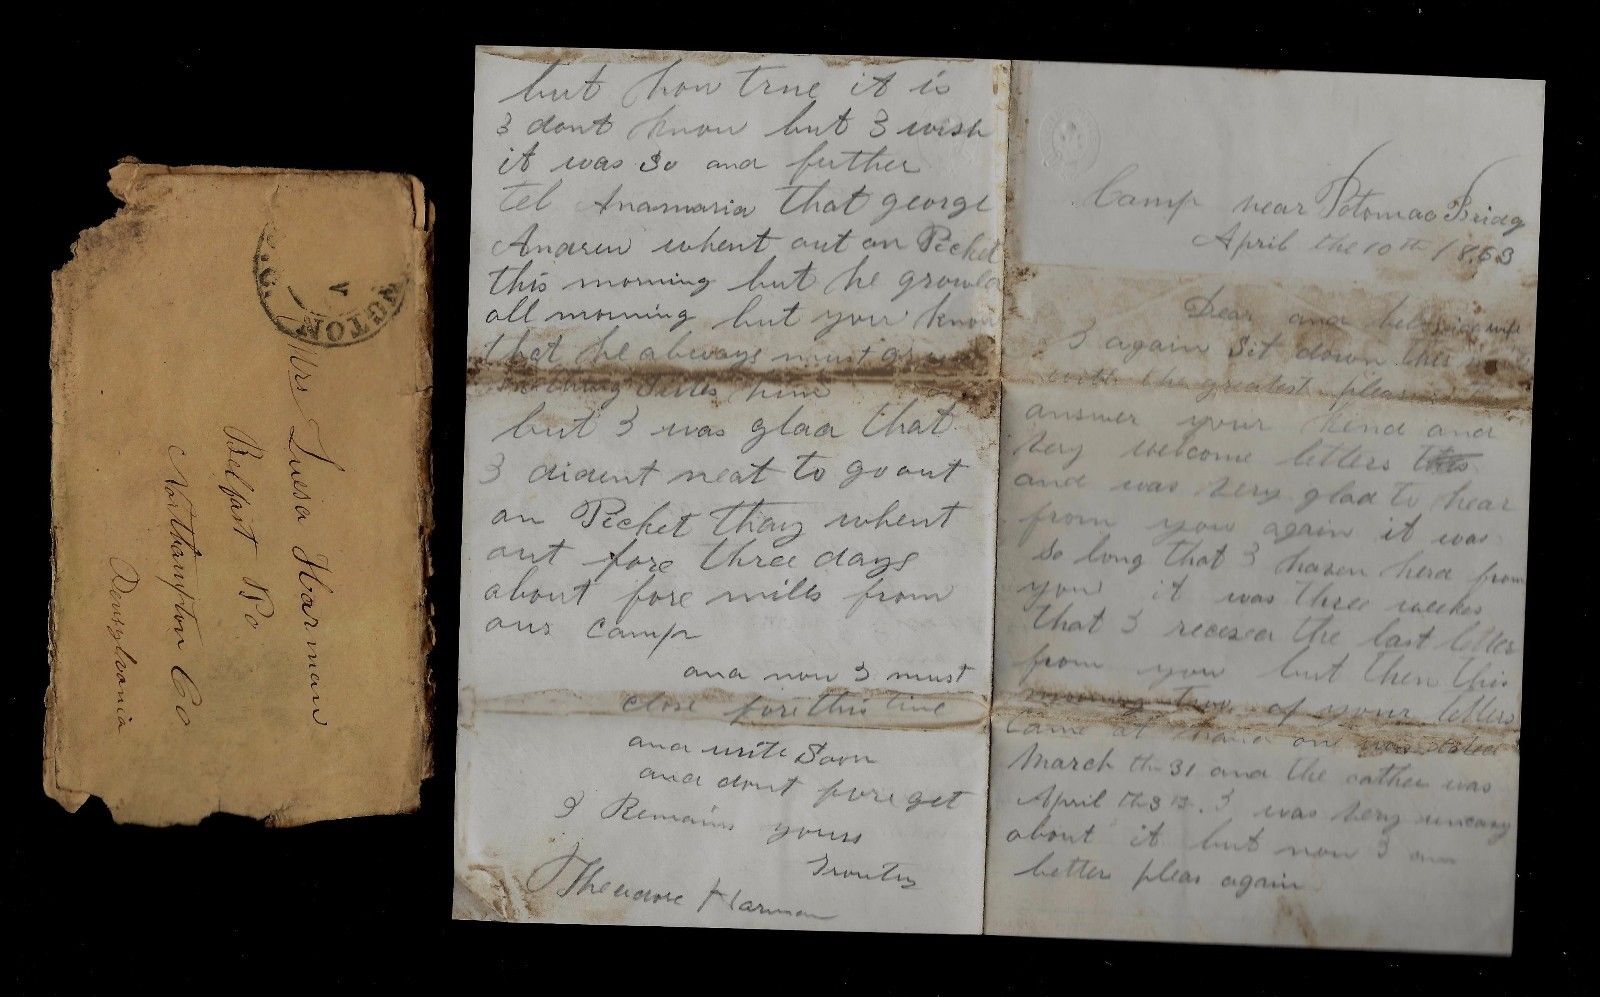 Mrs Luesa Harman
Belfast Po
Northampton Co
Pensylvania
NGTON
V
Camp near Potomac Bridg
April the 10th 1863
Dear and wife
I again Sit down this
with the greatest
answer your kind and
very welcome letters
and was very glad to hear
from you again it was
so long that I haven herd from
you it was three weekes
that I receved the last letter
from you but then this
morning two of your letters
came at hand one was dated
March the 31 and the oather was
April the 3 I was very uneasy
about it but now I am
better pleas again
but how true it is
I dont know but I wish
it was so and further
tel Anamaria that george
Andrew whent out on Picket
this morning but he growld
all morning but you know
that he always must
him
but I was glad that
I dident neat to go out
on Picket thay whent
out fore three days
about fore mills from
our camp
and now I must
close fore this time
and write Soon
and dont fore get
I Remains yours
Theodore Harman